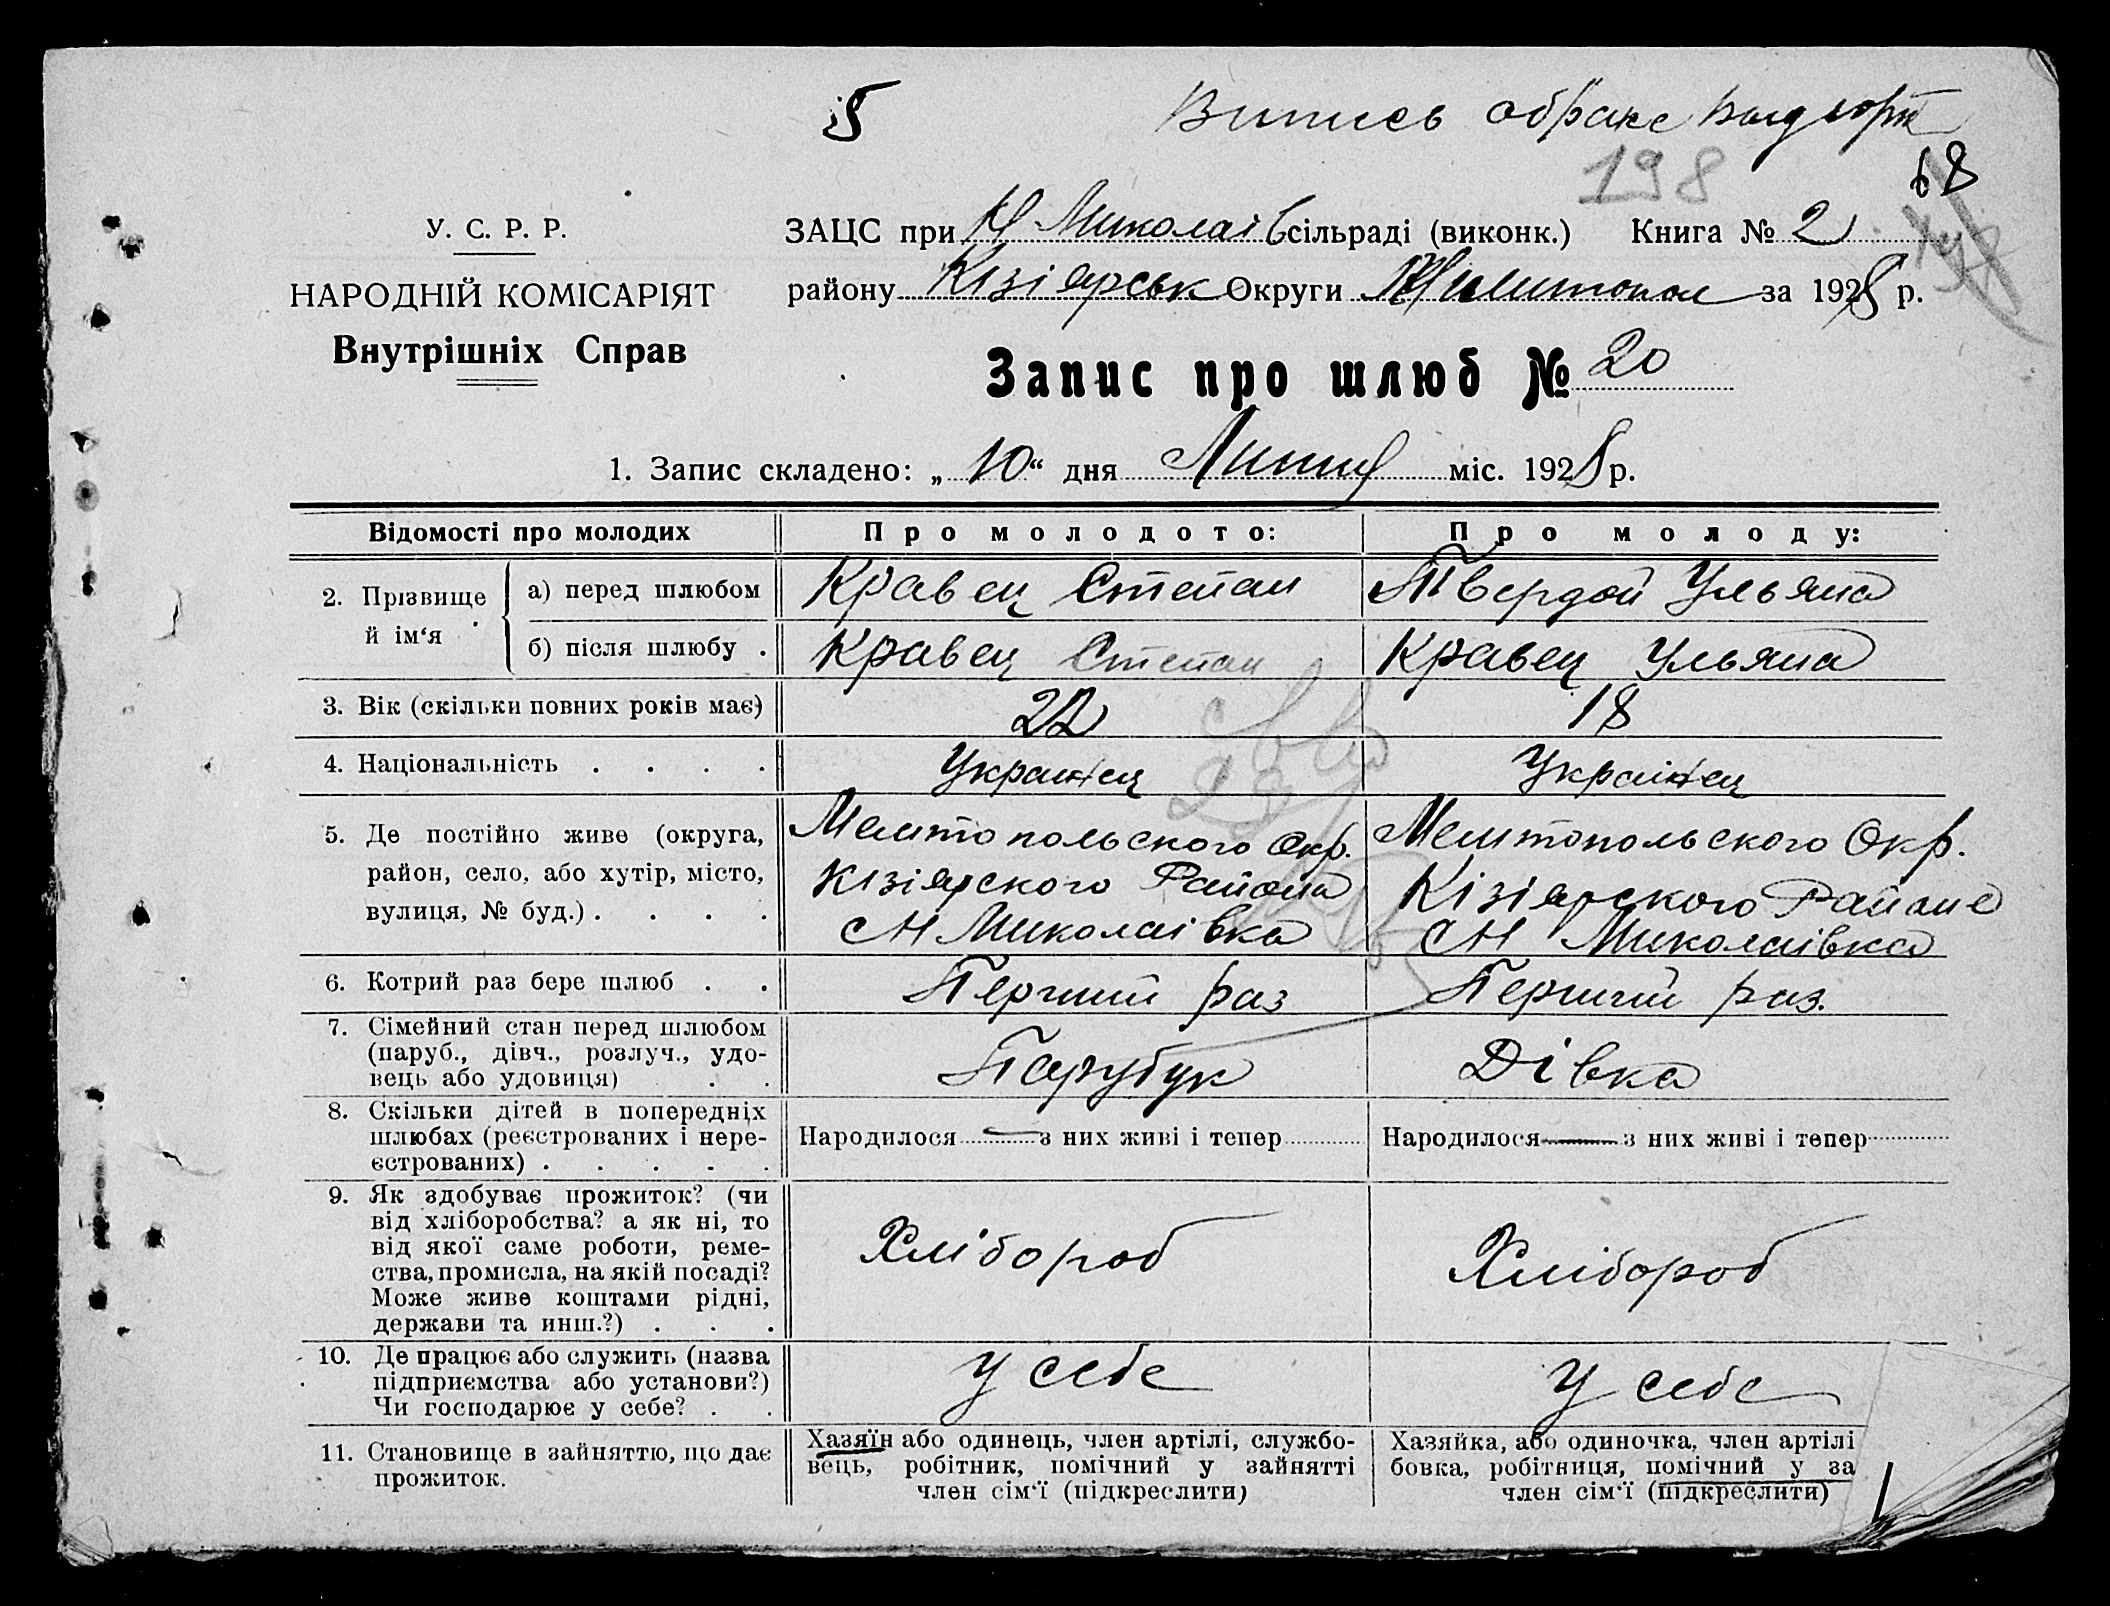 5 Випись о браке выд
198
68
У. С. Р. Р.
НАРОДНІЙ КОМІСАРІЯТ
Внутрішніх Справ
ЗАЦС при Н Миколаів сільраді (виконк.) Книга № 2
району Кізіярськ Округи за 1928 р.
Запис про шлюб № 20
1. Запис складено: „ 10 “ дня Липня міс. 1928 р.
Відомості про молодих Про молодого: Про молоду:
2. Прізвище й ім‘я
а) перед шлюбом Кравец Степан Твердой Ульяна
б) після шлюбу . Кравец Степан Кравец Ульяна
3. Вік (скільки повних років має) 22 18
4. Національність . . . . Украінец Украінец
5. Де постійно живе (округа,
район, село, або хутір, місто,
вулиця, № буд.) . . . .
Мелитопольского Окр.
Кізіярского Района
с Н Миколаівка
Мелитопольского Окр.
Кізіярского Району
с Н Миколаівка
6. Котрий раз бере шлюб . . Перший раз Перший раз.
7. Сімейний стан перед шлюбом
(паруб., дівч., розлуч., удо-
вець або удовиця) . .
Парубук Дівка
8. Скільки дітей в попередніх
шлюбах (реєстрованих і нере-
єстрованих) . . . . .
Народилося — з них живі і тепер Народилося — з них живі і тепер
9. Як здобуває прожиток? (чи
від хліборобства? а як ні, то
від якої саме роботи, реме-
ства, промисла, на якій посаді?
Може живе коштами рідні,
держави та инш.?) . . .
Хлібороб Хлібороб
10. Де працює або служить (назва
підприємства або установи?)
Чи господарює у себе? . .
У себе У себе
11. Становище в зайняттю, що дає
прожиток.
Хазяїн або одинець, член артілі, службо-
вець, робітник, помічний у зайнятті
член сім‘ї (підкреслити)
Хазяйка, або одиночка, член артілі
бовка, робітниця, помічний у за
член сім‘ї (підкреслити)